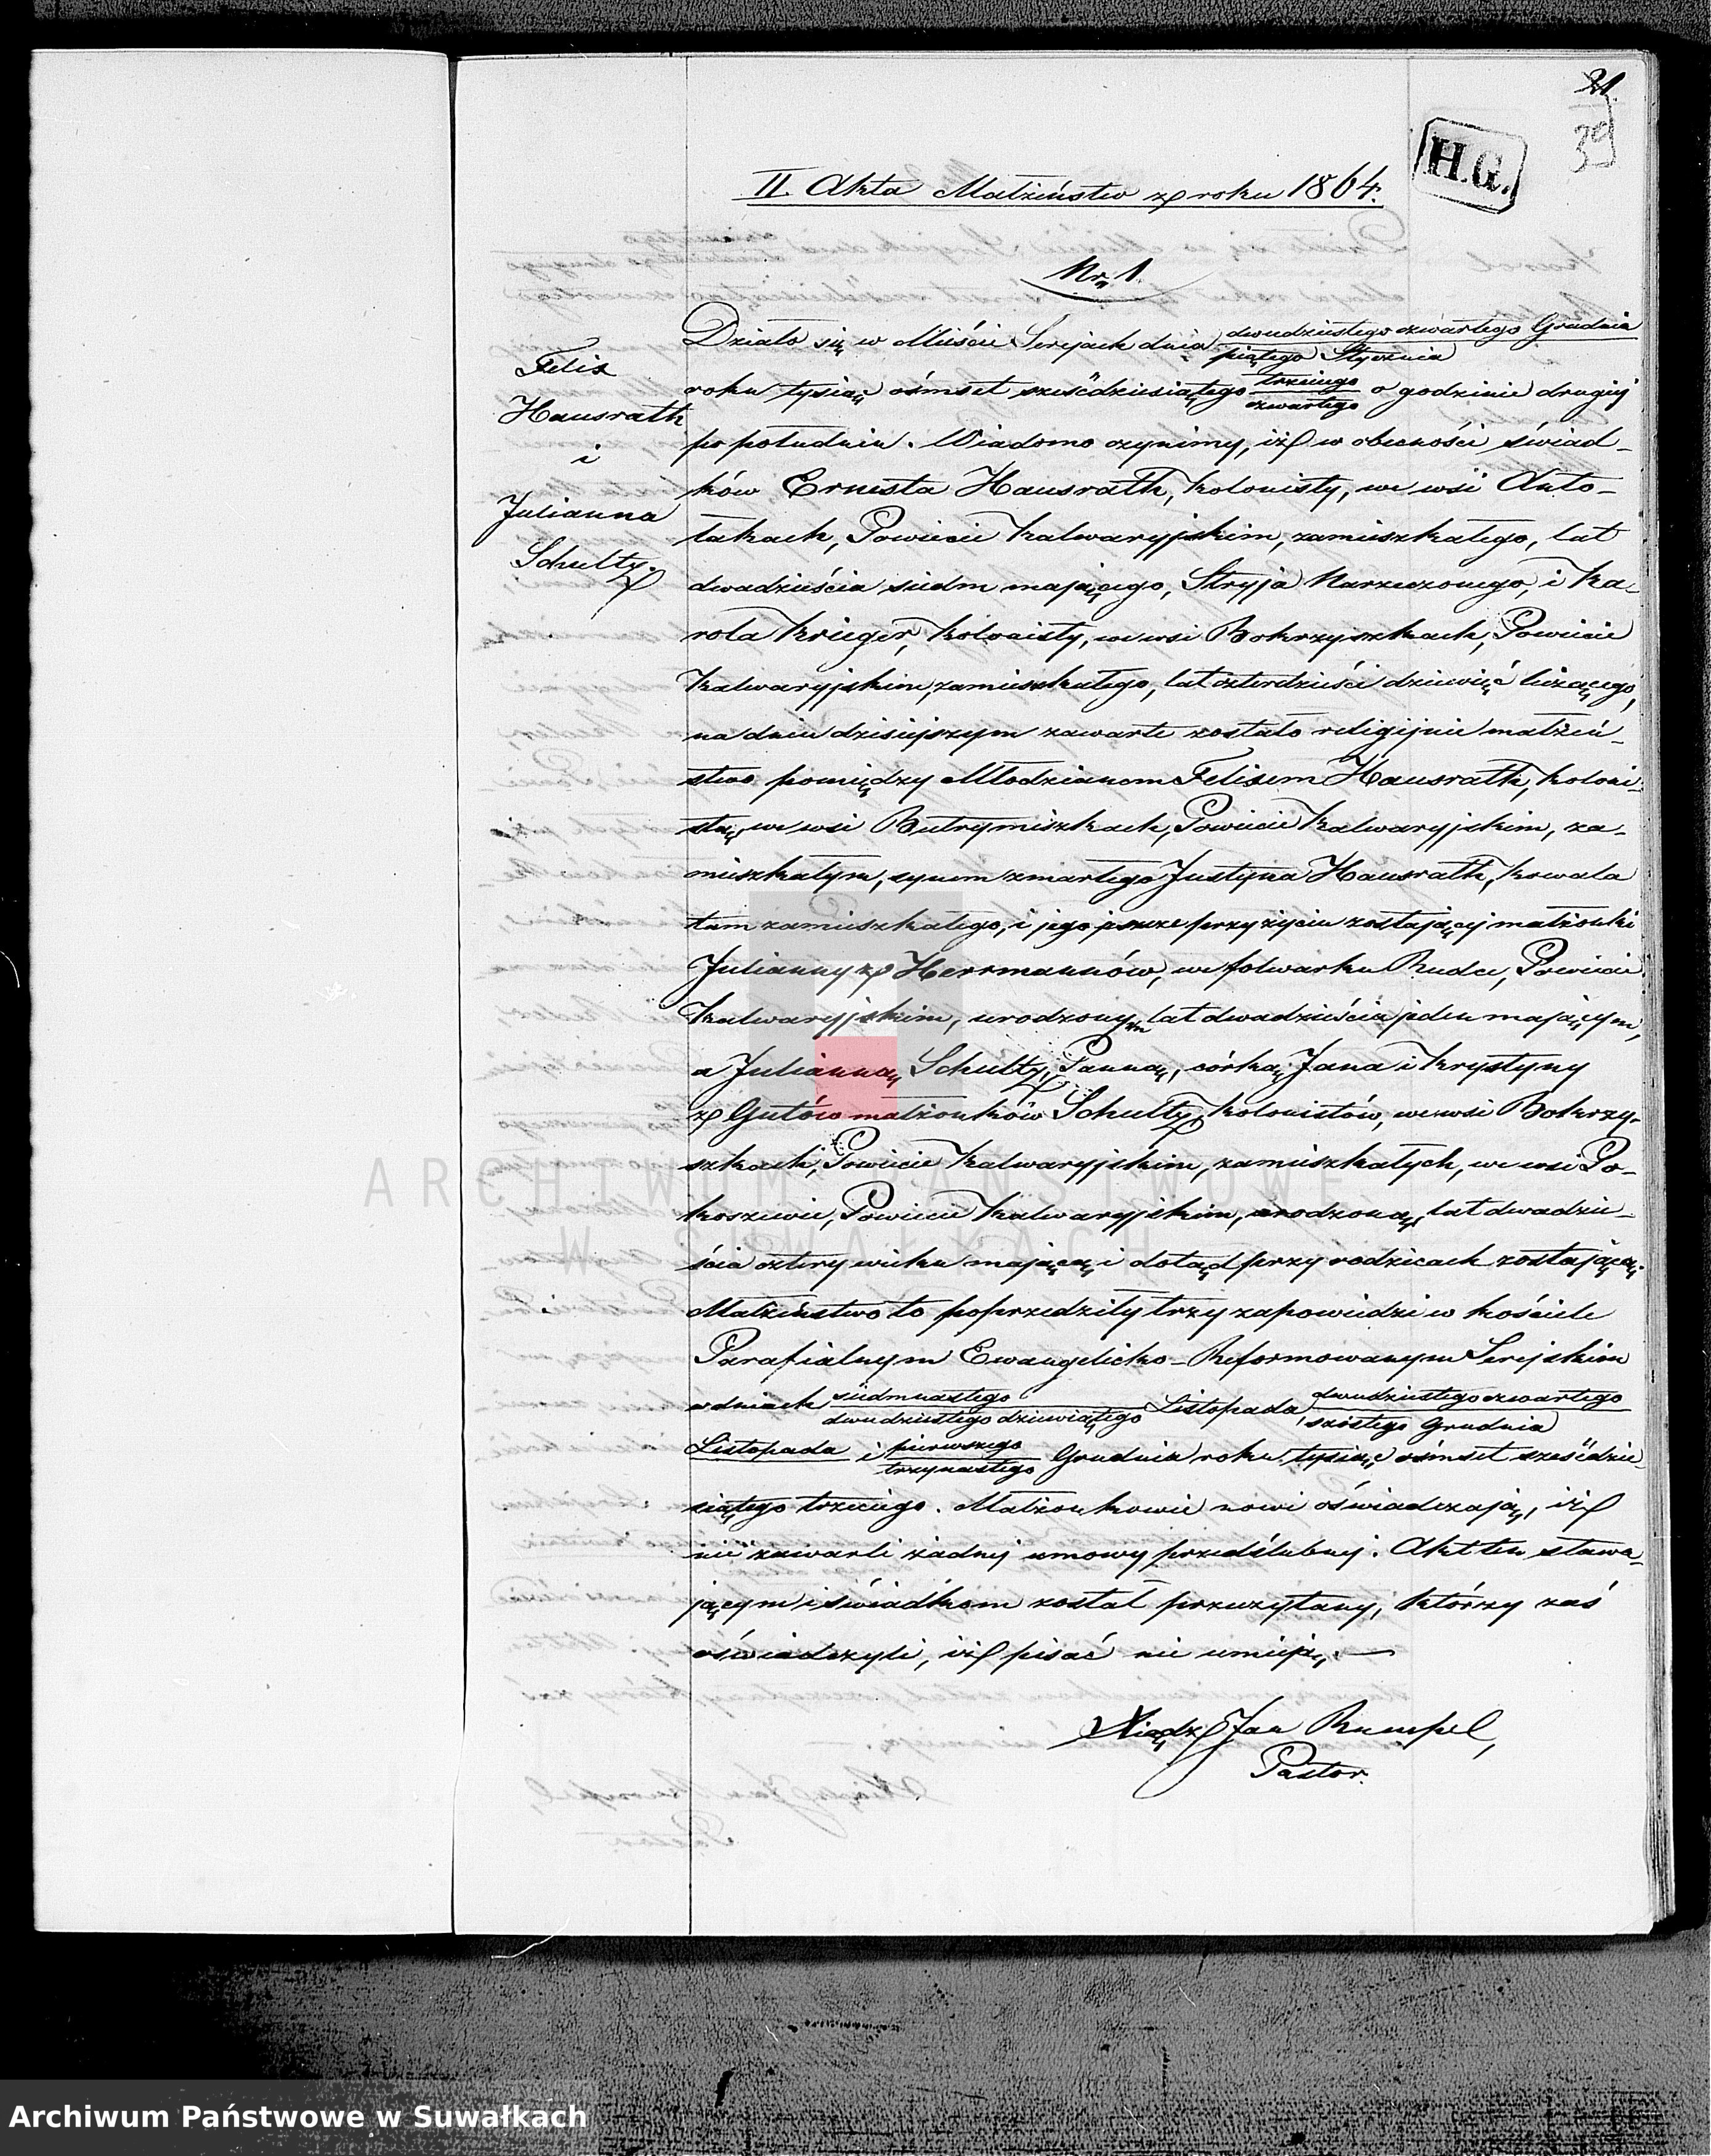 21.
39
H.G.
II. Akta Małżeństw z roku 1864.
Nr. 1.
Felix
Hausrath
i
Julianna
Schultz.
Działo się w Mieście Serejach dnia dwudziestego czwartego Grudnia
piątego Stycznia
roku tysiąc ośmset sześćdziesiątego trzeciego
czwartego o godzinie drugiej
po południu. Wiadomo czynimy, iż w obecności świad-
ków Ernesta Hausrath, kolonisty, we wsi Anto-
łakach, Powiecie Kalwaryjskim, zamieszkałego, lat
dwadzieścia siedm mającego, Stryja Narzeczonego, i Ka-
rola Krieger, kolonisty, we wsi Bokrzyszkach, Powiecie
Kalwaryjskim, zamieszkałego, lat czterdzieści dziewięć liczącego,
na dniu dzisiejszym zawarte zostało religijnie małżeń-
stwo pomiędzy Młodzianem Felixem Hausrath, koloni-
stą, we wsi Butrymiszkach, Powiecie Kalwaryjskim, za-
mieszkałym, synem zmarłego Justyna Hausrath, kowala
tam zamieszkałego, i jego jeszcze przy życiu zostającej małżonki
Julianny z Herrmannów, we folwarku Rudce, Powiecie
Kalwaryjskim, urodzonym, lat dwadzieścia jeden mającym,
a Julianną Schultz, Panną, córką Jana i Krystyny
z Gutów małżonków Schultz, kolonistów, we wsi Bokrzy-
szkach, Powiecie Kalwaryjskim, zamieszkałych, we wsi Po-
koszewie, Powiecie Kalwaryjskim, urodzoną, lat dwadzie-
ścia cztery wieku mającą i dotąd przy rodzicach zostającą.
Małżeństwo to poprzedziły trzy zapowiedzi w kościele
Parafialnym Ewangelicko-Reformowanym Serejskim
w dniach siedmnastego
dwudziestego dziewiątego Listopada, dwudziestego czwartego
szóstego Grudnia
Listopada i pierwszego
trzynastego Grudnia roku tysiąc ośmset sześćdzie-
siątego trzeciego. Małżonkowie nowi oświadczają, iż
nie zawarli żadnej umowy przedślubnej. Akt ten stawa-
jącym i świadkom został przeczytany, którzy zaś
oświadczyli, iż pisać nie umieją.
Xiądz Jan Rumpel,
Pastor.
ARCHIWUM PAŃSTWOWE
W SUWAŁKACH
Archiwum Państwowe w Suwałkach